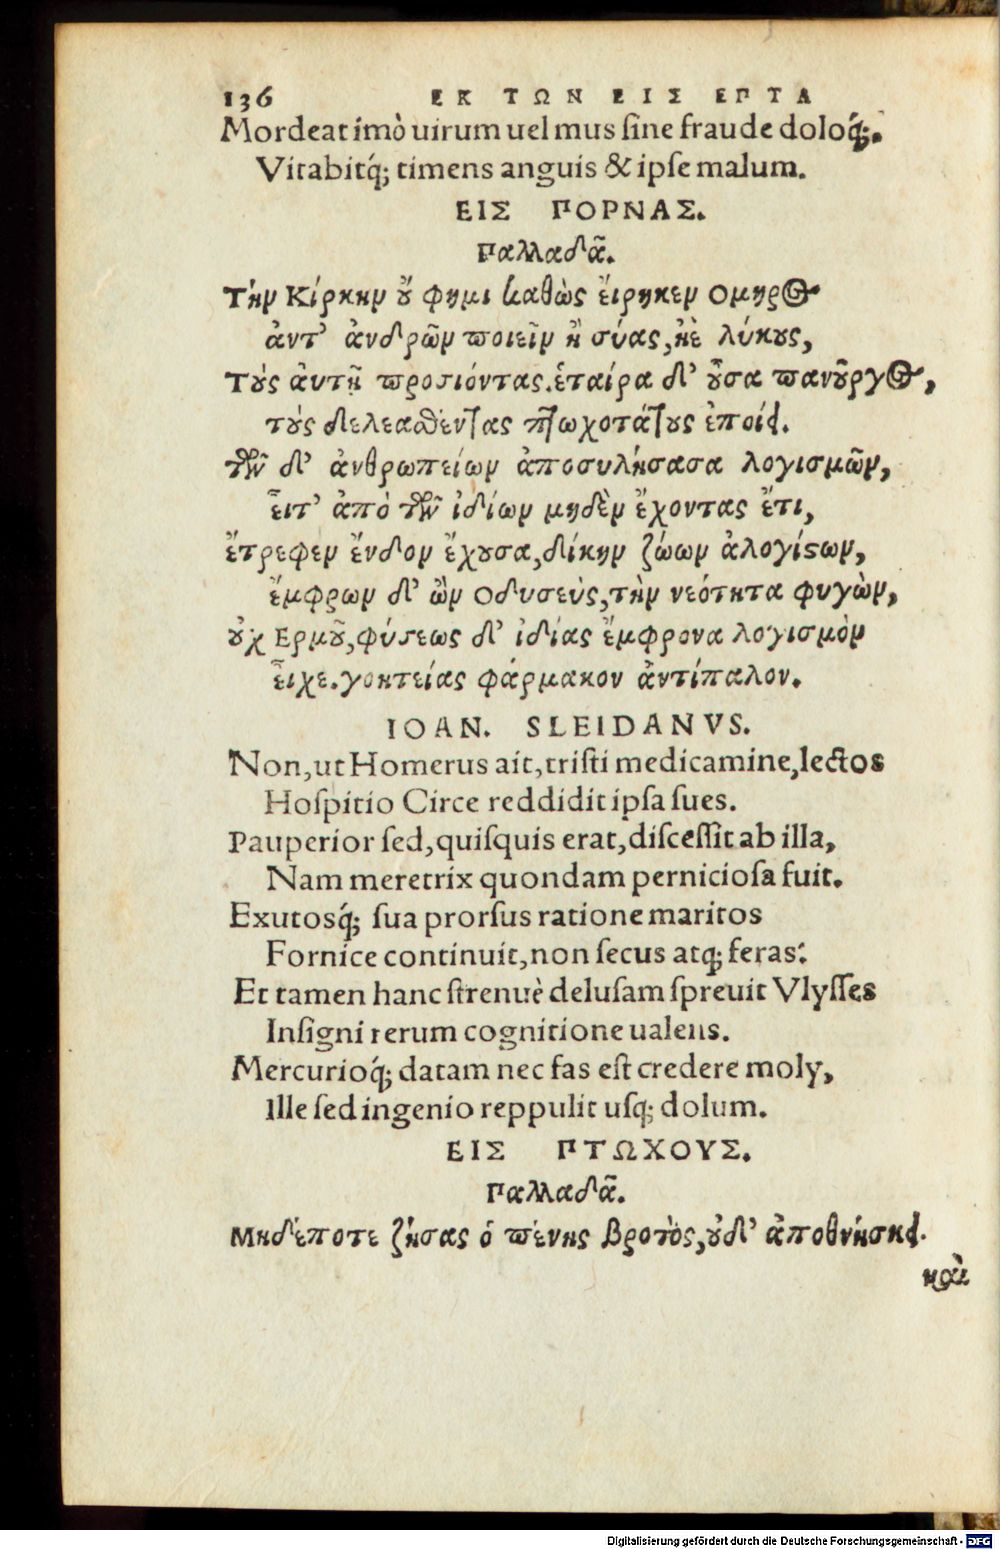 136 ΕΚ ΤΩΝ ΕΙΣ ΕΠΤΑ
Mordeat imò uirum uel mus ſine fraude doloq́;.
Vitabitq́; timens anguis & ipſe malum.
ΕΙΣ ΠΟΡΝΑΣ.
Παλλαδᾶ.
Τὴν Κίρκην ὔ φημι καθὼς ἔιρηκεν Ομηρος
ἀντ' ἀνδρῶν ποιεῖν ἢ σύας, ἠὲ λύκους,
Τοὺς ἀυτῇ προσιόντας. ἑταίρα δ' οὖσα πανοῦργος,
τοὺς δελεαθέντας πτωχοτάτους ἐποίει.
τῶν δ' ἀνθρωπείων ἀποσυλήσασα λογισμῶν,
εἶτ' ἀπὸ τῶν ἰδίων μηδὲν ἔχοντας ἔτι,
ἔτρεφεν ἔνδον ἔχουσα, δίκην ζώων ἀλογίστων,
ἔμφρων δ' ὢν Οδυσεύς, τὴν νεότητα φυγὼν,
οὐχ Ερμοῦ, φύσεως δ' ἰδίας ἔμφρονα λογισμὸν
εἶχε. γοητείας φάρμακον ἀντίπαλον.
IOAN. SLEIDANVS.
Non, ut Homerus ait, triſti medicamine, lectos
Hoſpitio Circe reddidit ipſa ſues.
Pauperior ſed, quiſquis erat, diſceſſit ab illa,
Nam meretrix quondam pernicioſa fuit.
Exutosq́; ſua prorſus ratione maritos
Fornice continuit, non ſecus atq; feras:
Et tamen hanc ſtrenuè deluſam ſpreuit Vlyſſes
Inſigni rerum cognitione ualens.
Mercurioq́; datam nec fas eſt credere moly,
Ille ſed ingenio reppulit uſq; dolum.
ΕΙΣ ΠΤΩΧΟΥΣ.
Παλλαδᾶ.
Μηδέποτε ζήσας ὁ πένης βροτὸς, οὐδ' ἀποθνήσκει.
καὶ
Digitalisierung gefördert durch die Deutsche Forschungsgemeinschaft - DFG